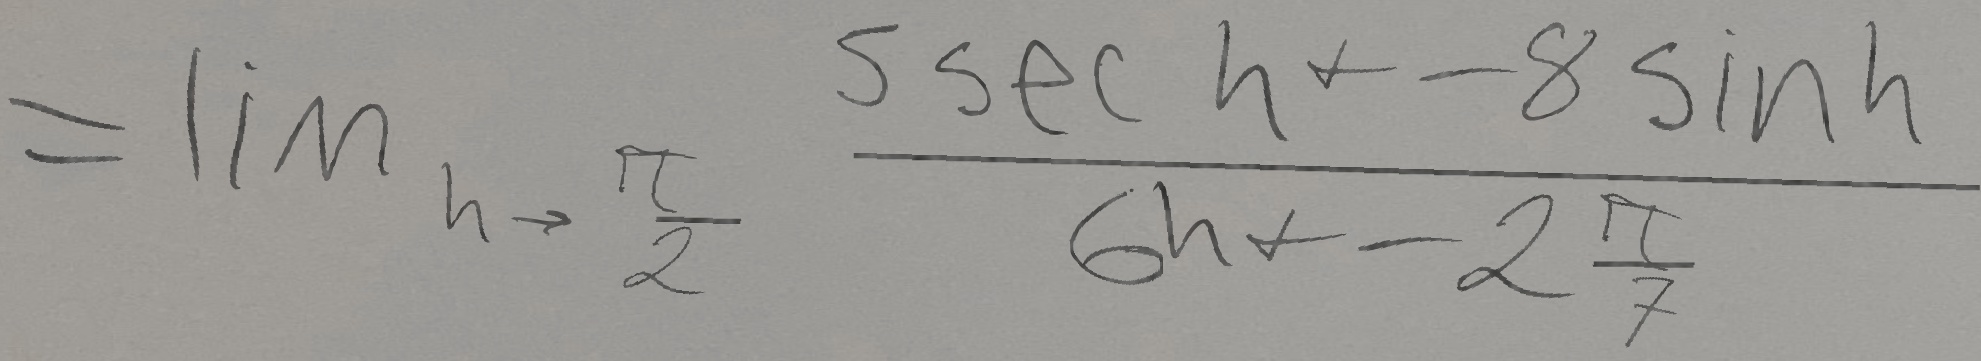 = lim_{h→\frac{π}{2}} \frac{5 sec h + -8 sin h}{6h + -2\frac{π}{7}}